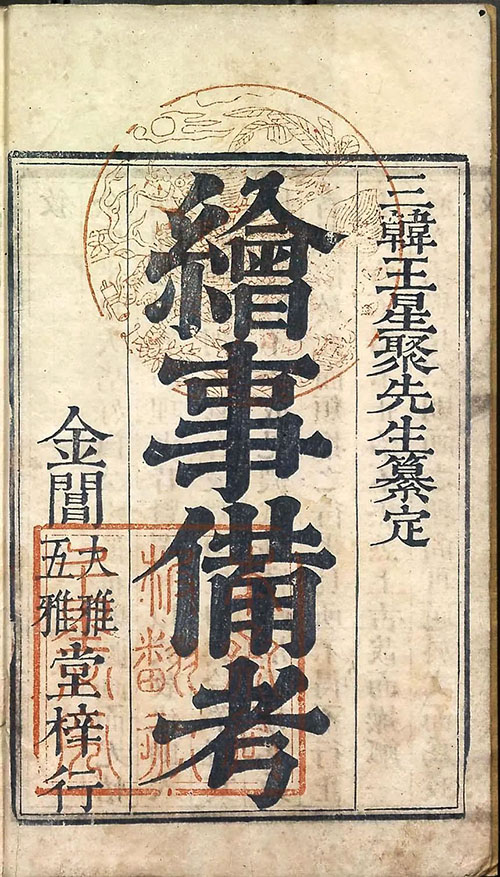 三韓王星聚先生纂定
繪事備考
金閶
大雅
五雅
堂梓行